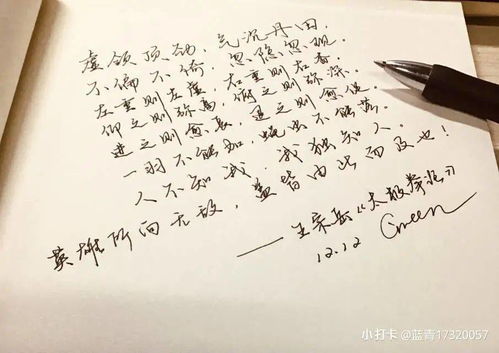 虚领顶劲,气沉丹田,
不偏不倚,忽隐忽现。
左重则左虚,右重则右杳。
仰之则弥高,俯之则弥深。
进之则愈长,退之则愈促。
一羽不能加,蝇虫不能落。
人不知我,我独知人。
英雄所向无敌,盖皆由此而及也!
——王宗岳《太极拳论》
12.12 Green
小打卡 @蓝青17320057